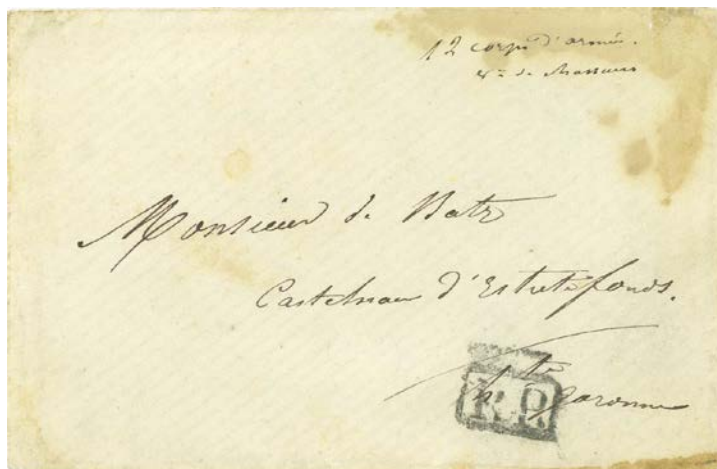 12 corps d'armée.
de
Monsieur de Batz
Castelnau d'Estretefonds.
hte Garonne